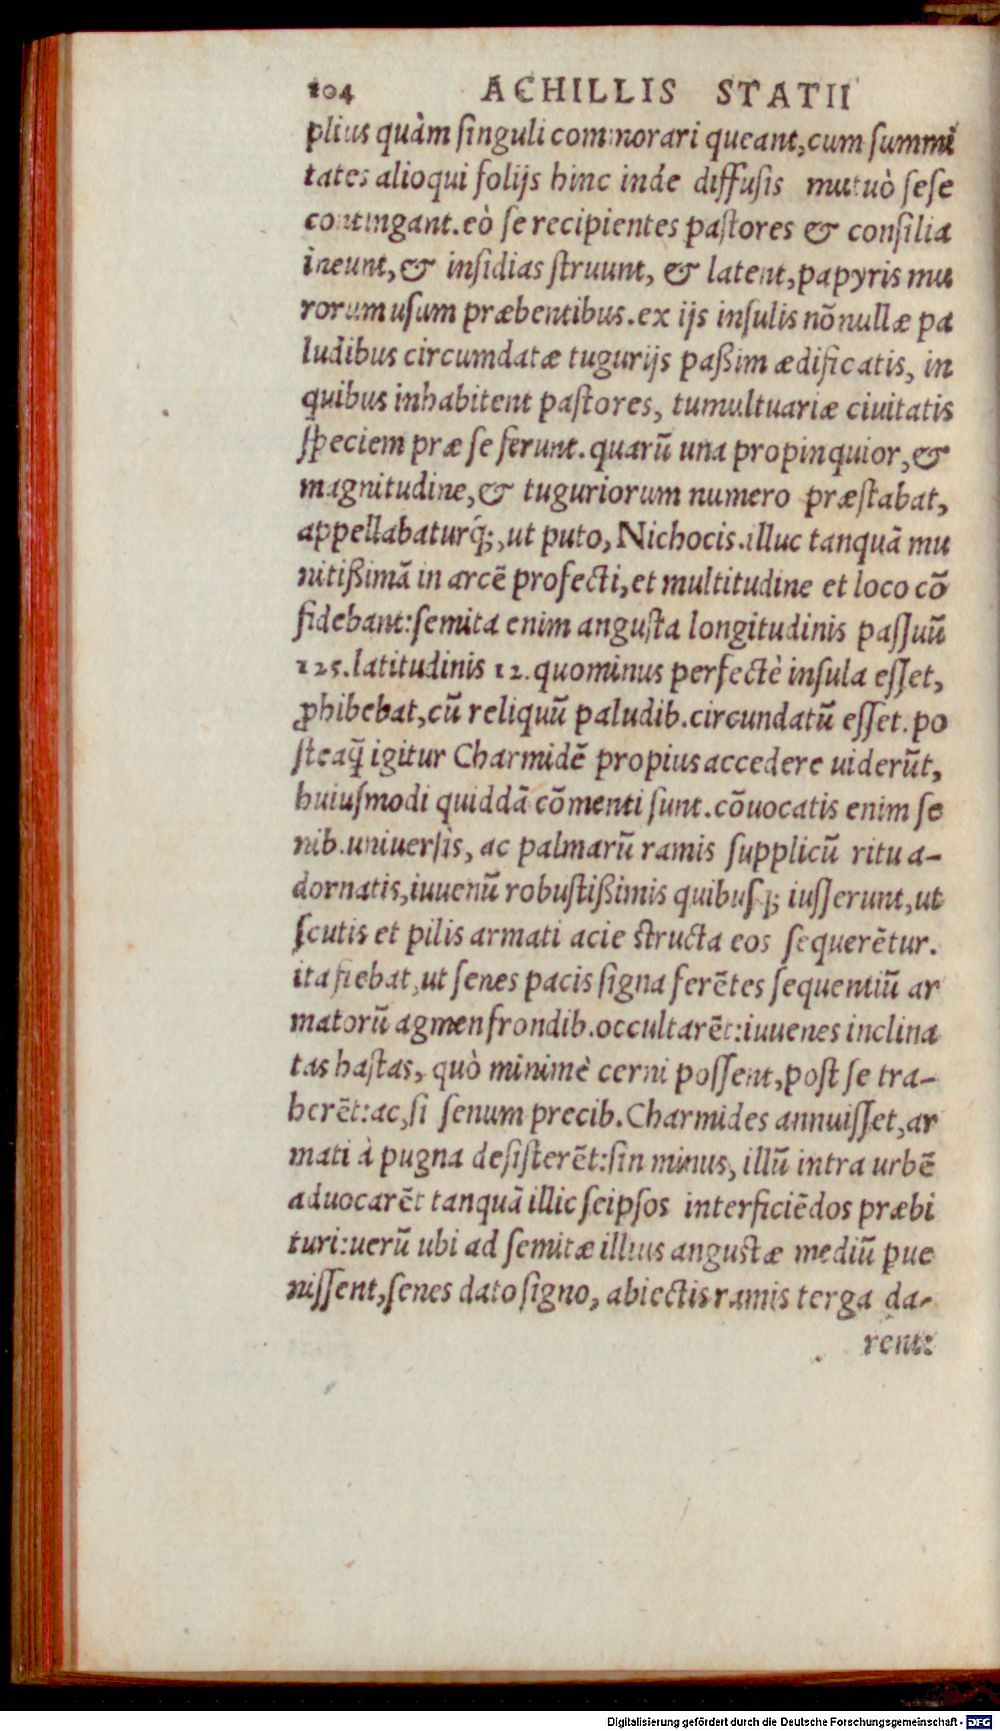 104 ACHILLIS STATII
plius quàm ſinguli commorari queant, cum ſummi
tates alioqui folijs hinc inde diffuſis mutuò ſeſe
contingant. eò ſe recipientes paſtores & conſilia
ineunt, & inſidias ſtruunt, & latent, papyris mu
rorum uſum præbentibus. ex ijs inſulis nõnullæ pa
ludibus circumdatæ tugurijs paßim ædificatis, in
quibus inhabitent paſtores, tumultuariæ ciuitatis
ſpeciem præ ſe ferunt. quarũ una propinquior, &
magnitudine, & tuguriorum numero præſtabat,
appellabaturq́;, ut puto, Nichocis. illuc tanquã mu
nitißimã in arcẽ profecti, et multitudine et loco cõ
fidebant: ſemita enim anguſta longitudinis paſſuũ
125. latitudinis 12. quominus perfectè inſula eſſet,
ꝓhibebat, cũ reliquũ paludib. circundatũ eſſet. po
ſteaq̃ igitur Charmidẽ propius accedere uiderũt,
huiuſmodi quiddã cõmenti ſunt. cõuocatis enim ſe
nib. uniuerſis, ac palmarũ ramis ſupplicũ ritu a-
dornatis, iuuenũ robuſtißimis quibuſq; iuſſerunt, ut
ſcutis et pilis armati acie ſtructa eos ſequerẽtur.
ita fiebat, ut ſenes pacis ſigna ferẽtes ſequentiũ ar
matorũ agmen frondib. occultarẽt: iuuenes inclina
tas haſtas, quò minimè cerni poſſent, poſt ſe tra-
herẽt: ac, ſi ſenum precib. Charmides annuiſſet, ar
mati à pugna deſiſterẽt: ſin minus, illũ intra urbẽ
aduocarẽt tanquã illic ſeipſos interficiẽdos præbi
turi: uerũ ubi ad ſemitæ illius anguſtæ mediũ ꝑue
niſſent, ſenes dato ſigno, abiectis ramis terga da-
rent:
Digitalisierung gefördert durch die Deutsche Forschungsgemeinschaft - DFG